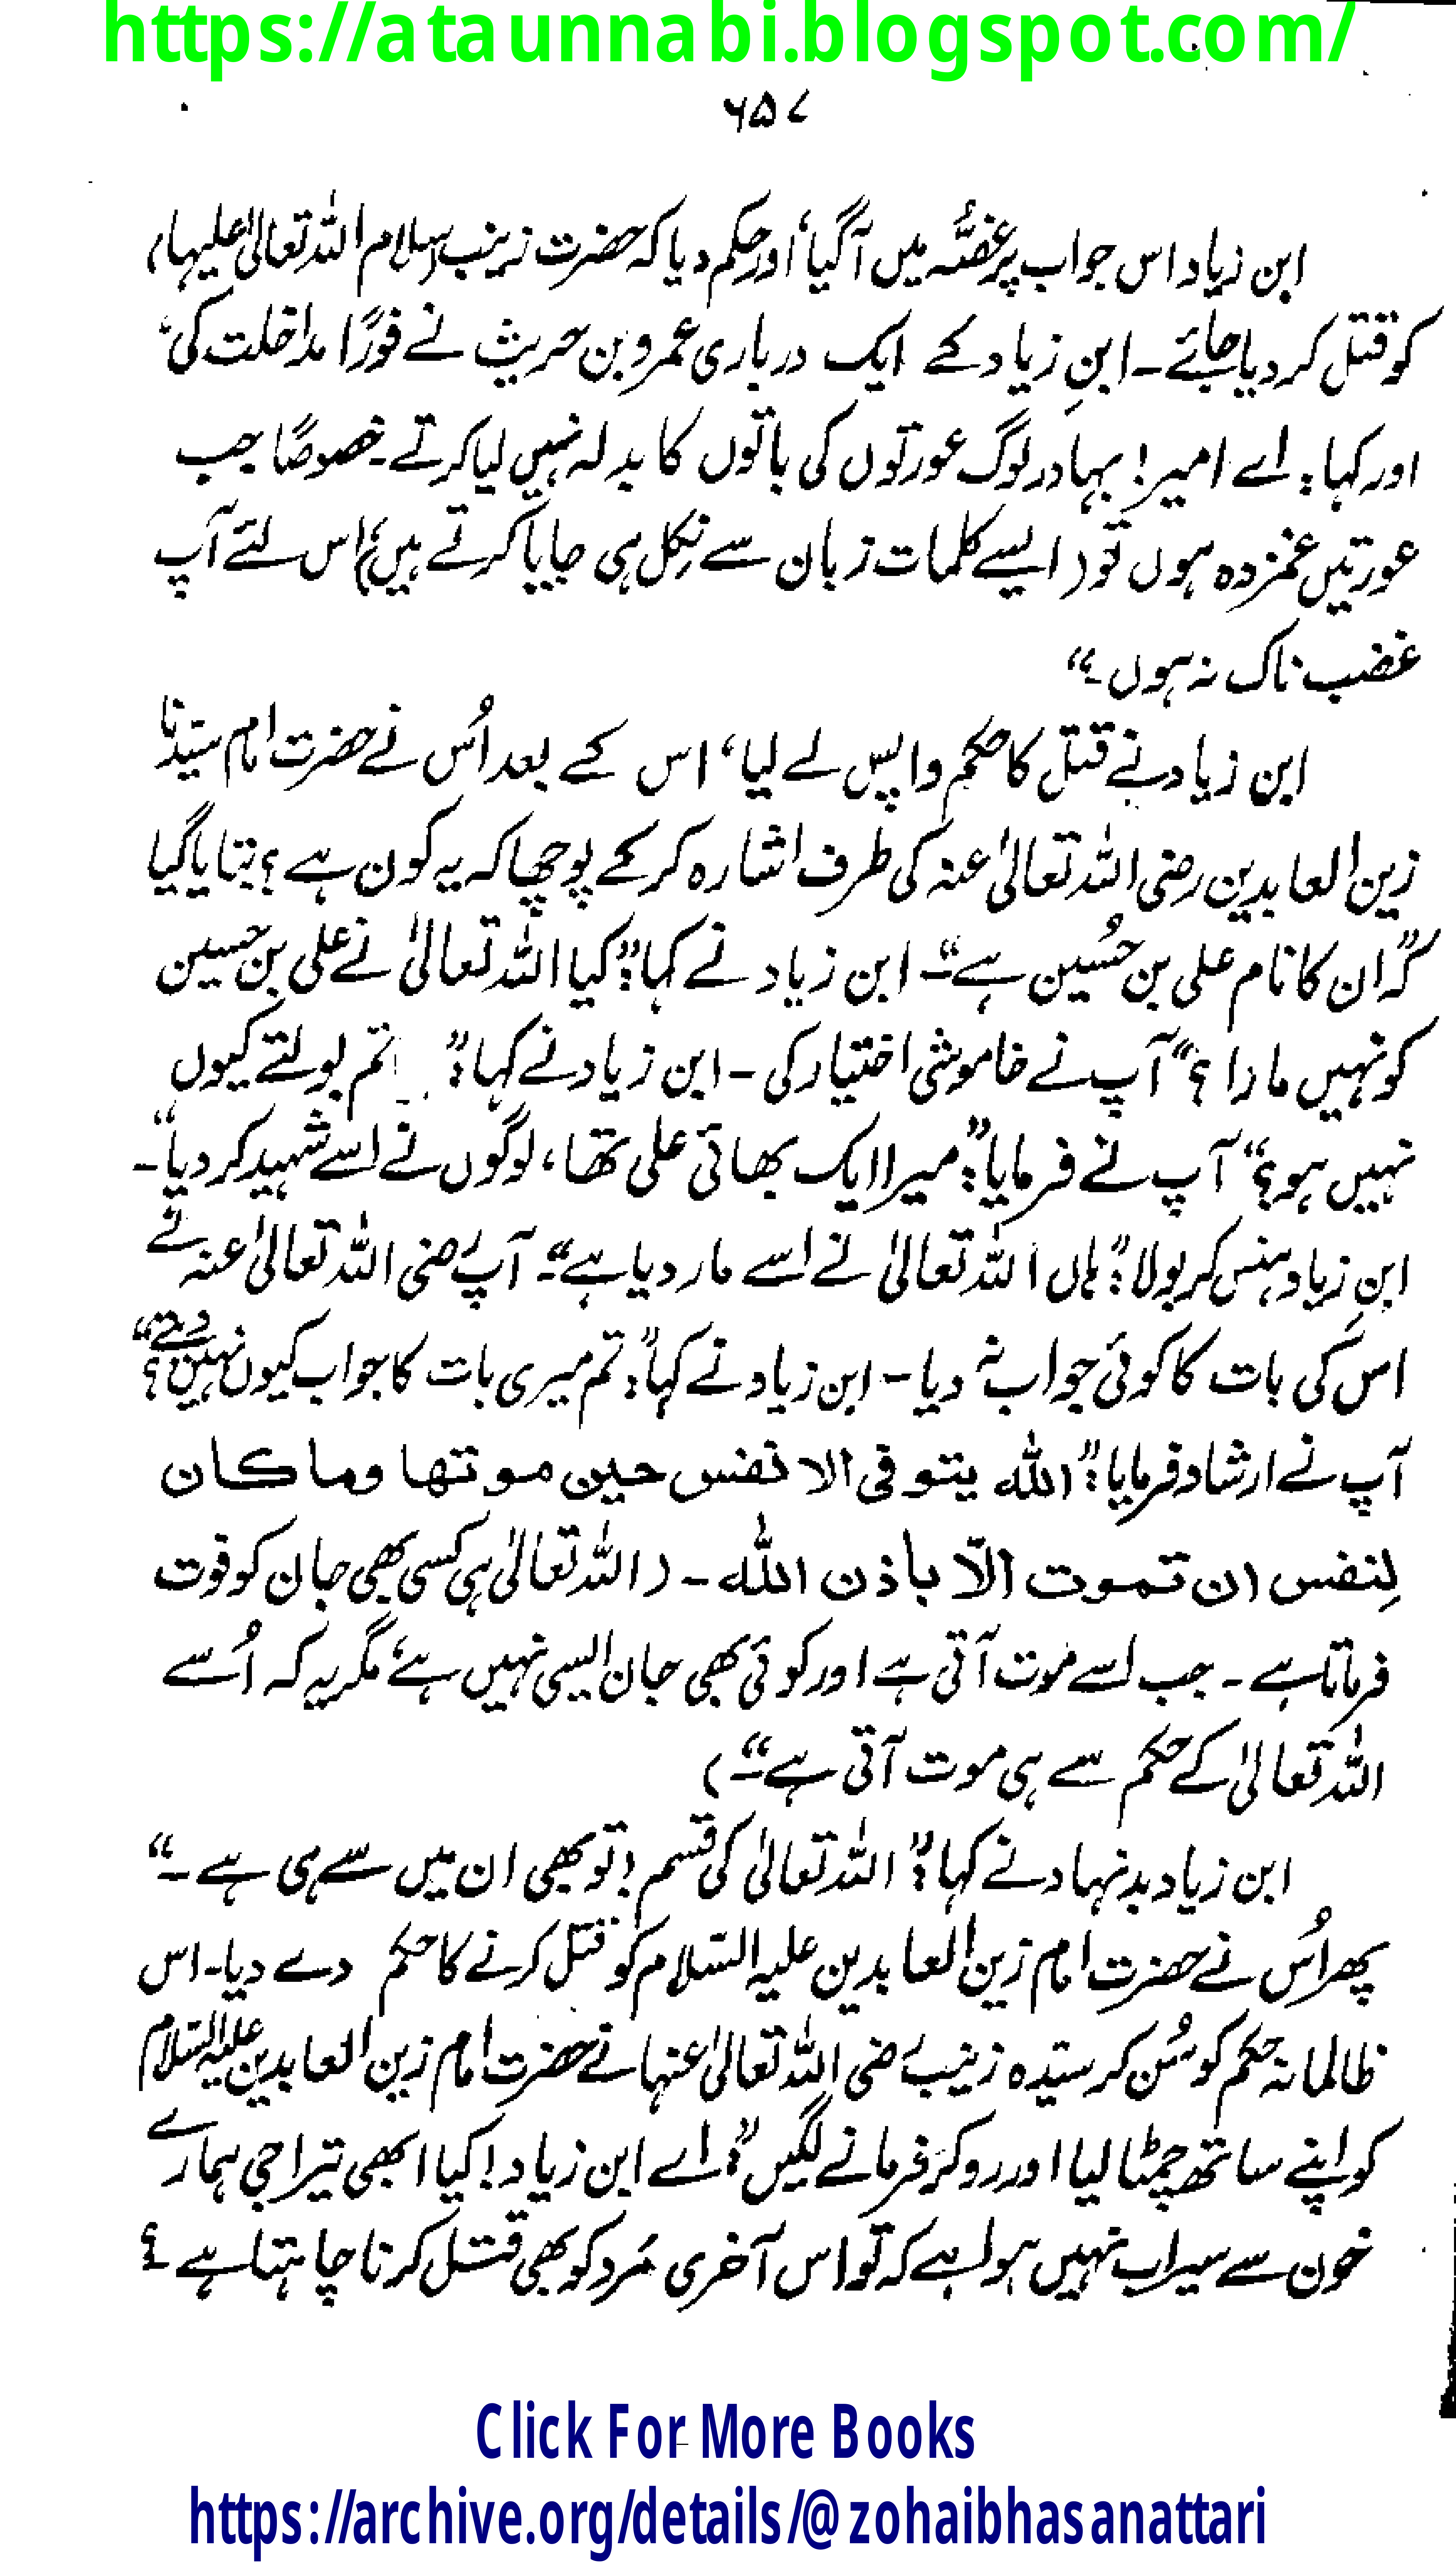 https://ataunnabi.blogspot.com/
۶۵۷
ابن زیاد اس جواب پر غصّہ میں آ گیا، اور حکم دیا کہ حضرت زینب (سلام اللہ تعالیٰ علیہا)
کو قتل کر دیا جائے ۔ ابنِ زیاد کے ایک درباری عمرو بن حریث نے فورًا مداخلت کی،
اور کہا: اے امیر! بہادر لوگ عورتوں کی باتوں کا بدلہ نہیں لیا کرتے ۔ خصوصًا جب
عورتیں غمزدہ ہوں تو (ایسے کلمات زبان سے نکل ہی جایا کرتے ہیں،) اس لئے آپ
غضب ناک نہ ہوں ۔“
ابن زیاد نے قتل کا حکم واپس لے لیا، اس کے بعد اُس نے حضرت امام سیّدنا
زین العابدین رضی اللہ تعالیٰ عنہ کی طرف اشارہ کر کے پوچھا کہ یہ کون ہے؟ بتایا گیا
کہ ”ان کا نام علی بن حُسین ہے“۔ ابن زیاد نے کہا: ”کیا اللہ تعالیٰ نے علی بن حسین
کو نہیں مارا؟“ آپ نے خاموشی اختیار کی ۔ ابن زیاد نے کہا: ” تم بولتے کیوں
نہیں ہو؟“ آپ نے فرمایا: ”میرا ایک بھائی علی تھا، لوگوں نے اسے شہید کر دیا“۔
ابنِ زیاد ہنس کر بولا: ”ہاں اللہ تعالیٰ نے اسے مار دیا ہے“۔ آپ رضی اللہ تعالیٰ عنہ نے
اس کی بات کا کوئی جواب نہ دیا ۔ ابن زیاد نے کہا: ”تم میری بات کا جواب کیوں نہیں دیتے؟“
آپ نے ارشاد فرمایا: ”الله يتوفى الانفس حين موتها وما كان
لِنفس ان تموت الّا باذن الله ۔ (اللہ تعالیٰ ہی کسی بھی جان کو فوت
فرماتا ہے ۔ جب اسے موت آتی ہے اور کوئی بھی جان ایسی نہیں ہے، مگر یہ کہ اُسے
اللہ تعالیٰ کے حکم سے ہی موت آتی ہے“۔)
ابن زیاد بدنہاد نے کہا: ”اللہ تعالیٰ کی قسم! تو بھی ان میں سے ہی ہے ۔“
پھر اُس نے حضرت امام زین العابدین علیہ السّلام کو قتل کرنے کا حکم دے دیا ۔ اس
ظالمانہ حکم کو سُن کر سیّدہ زینب رضی اللہ تعالیٰ عنہا نے حضرت امام زین العابدین علیہ السّلام
کو اپنے ساتھ چمٹا لیا اور رو کر فرمانے لگیں: ”اے ابن زیاد! کیا ابھی تیرا جی ہمارے
خون سے سیراب نہیں ہوا ہے کہ تو اس آخری مَرد کو بھی قتل کرنا چاہتا ہے ۔؟
Click For More Books
https://archive.org/details/@zohaibhasanattari